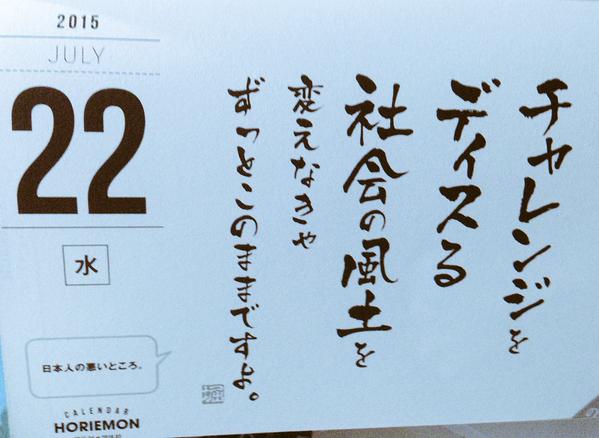 2015
JULY
22
水
日本人の悪いところ。
CALENDAR
HORIEMON
チャレンジを
ディスる
社会の風土を
変えなきゃ
ずっとこのままですよ。